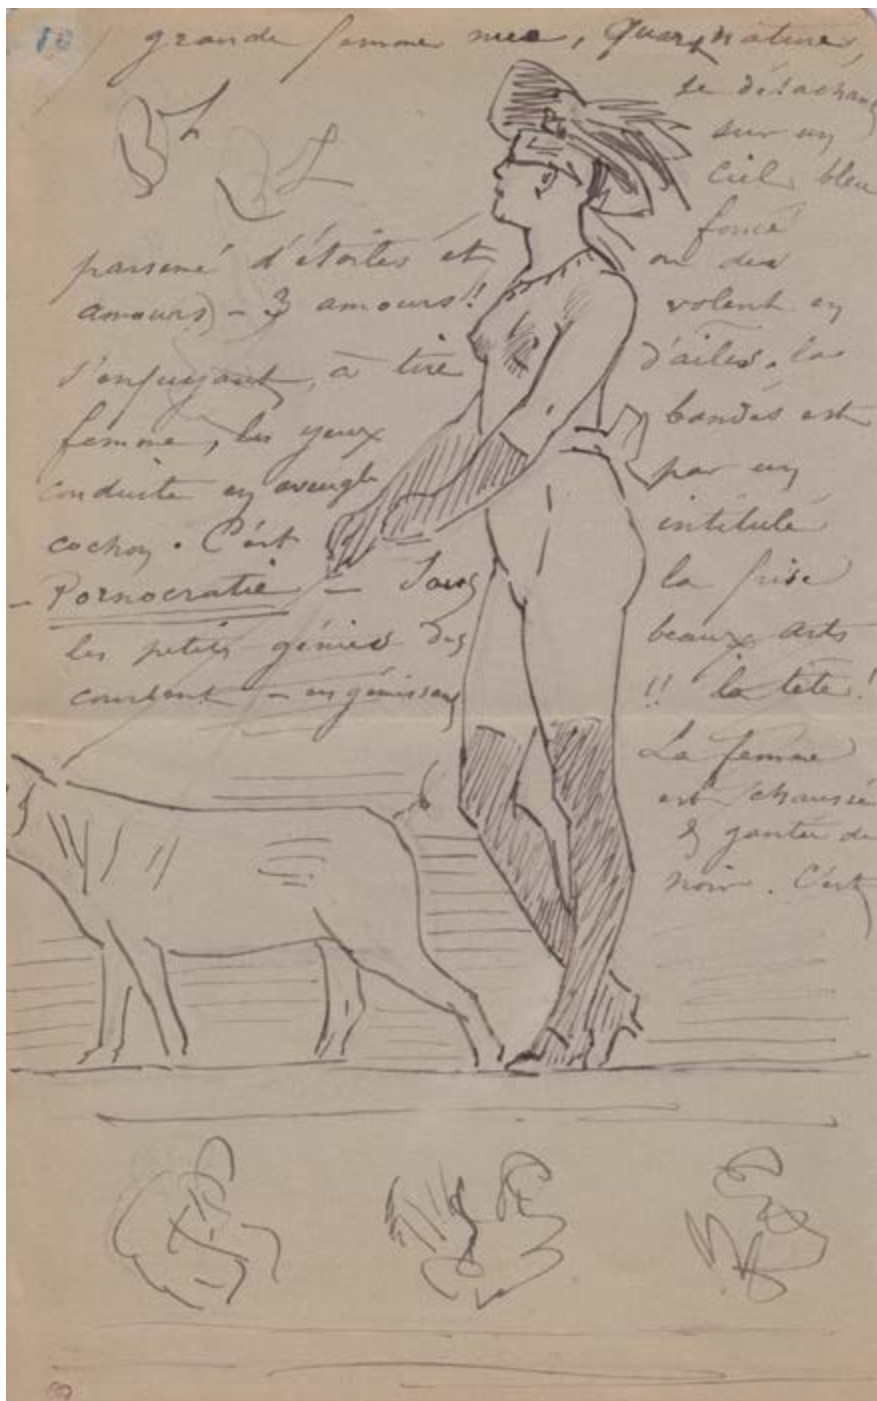 10
grande femme nue, quart nature,
se détachant
sur un
ciel bleu
foncé
parsemé d'étoiles et où des
amours) - 3 amours! volent en
s'enfuyant, à tire d'ailes, la
femme, les yeux bandés est
conduite en aveugle par un
cochon. C'est intitulé
- Pornocratie - Sous la frise
les petits génies des beaux arts
courbent - en gémissant !! la tête!
La femme
est chaussée
& gantée de
noir. C'est